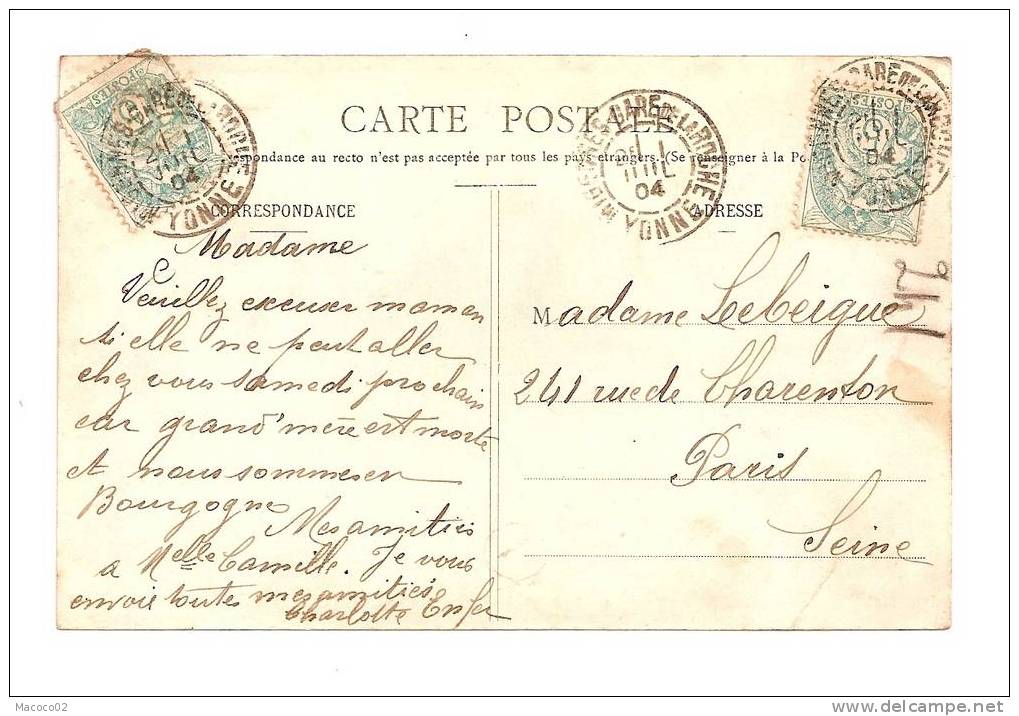 CARTE POSTALE
respondance au recto n'est pas acceptée par tous les pays étrangers. (Se renseigner à la Po
CORRESPONDANCE
Madame
Veuillez excuser maman
si elle ne peut aller
chez vous samedi prochain
car grand'mère est morte
et nous sommes en
Bourgogne
Mes amitiés
a Melle Camille. Je vous
envoie toutes mes amitiés
Charlotte Enfer
ADRESSE
Madame Lebeigue
241 rue de Charenton
Paris
Seine
POSTES
GARE DE LAROCHE
YONNE
04
POSTES
YONNE
04
Macoco02